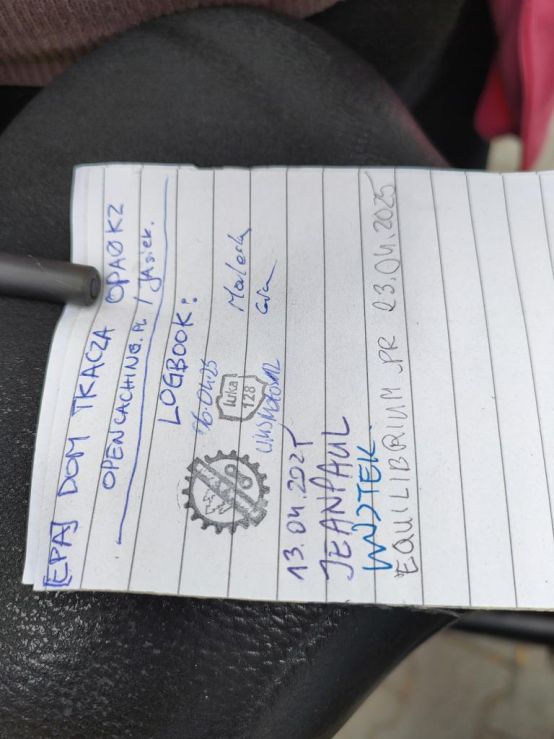 [EPA] DOM TKACZA OPA0KZ
OPENCACHING.PL / JASIEK.
LOGBOOK:
16.04.25
luka
128
13.04.2025
JEANPAUL
WOJTEK.
EQUILIBRIUM_PR 23.04.2025